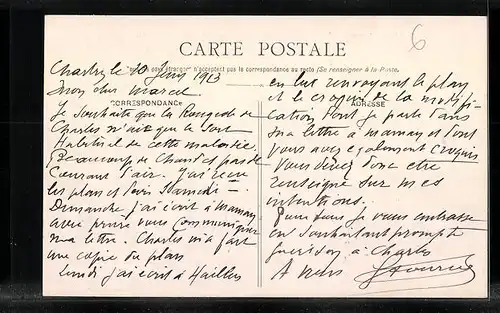 CARTE POSTALE
pays étrangers n'acceptent pas la correspondance au recto (Se renseigner à la Poste.
6
le 10 Juin 1913
Mon cher Marcel
CORRESPONDANCE
Je souhaite que la Rougeole de
Charles n'ait que le sort
Habituel de cette maladie.
Beaucoup de Chaud et pas de
Courant d'air. J'ai reçu
les plans et Devis Samedi =.
Dimanche j'ai écrit à Maman
avec prière vous communiquer
ma lettre. Charles m'a fait
une copie du plan
Lundi j'ai écrit à
en lui renvoyant le plan
et le croquis de la modifi-
ADRESSE
cation dont je parle dans
ma lettre à maman et dont
vous avez également croquis
Vous devez donc être
renseigné sur mes
intentions.
Pour tous je vous embrasse
en souhaitant prompte
guérison à Charles
A